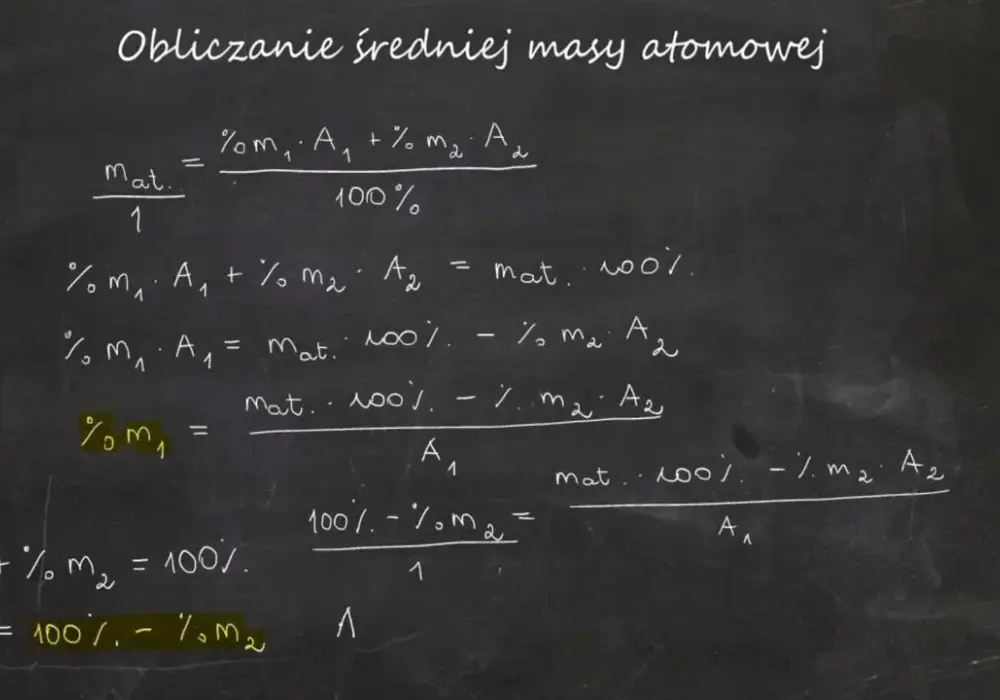 Obliczanie średniej masy atomowej
m_at. / 1 = (%m₁ · A₁ + % m₂ · A₂) / 100%
% m₁ · A₁ + % m₂ · A₂ = mat. · 100%.
% m₁ · A₁ = mat. · 100%. - % m₂ · A₂
% m₁ = (mat. · 100%. - %. m₂ · A₂) / A₁
(100%. - % m₂) / 1 = (mat. · 100%. - %. m₂ · A₂) / A₁
+ % m₂ = 100%.
= 100%. - % m₂